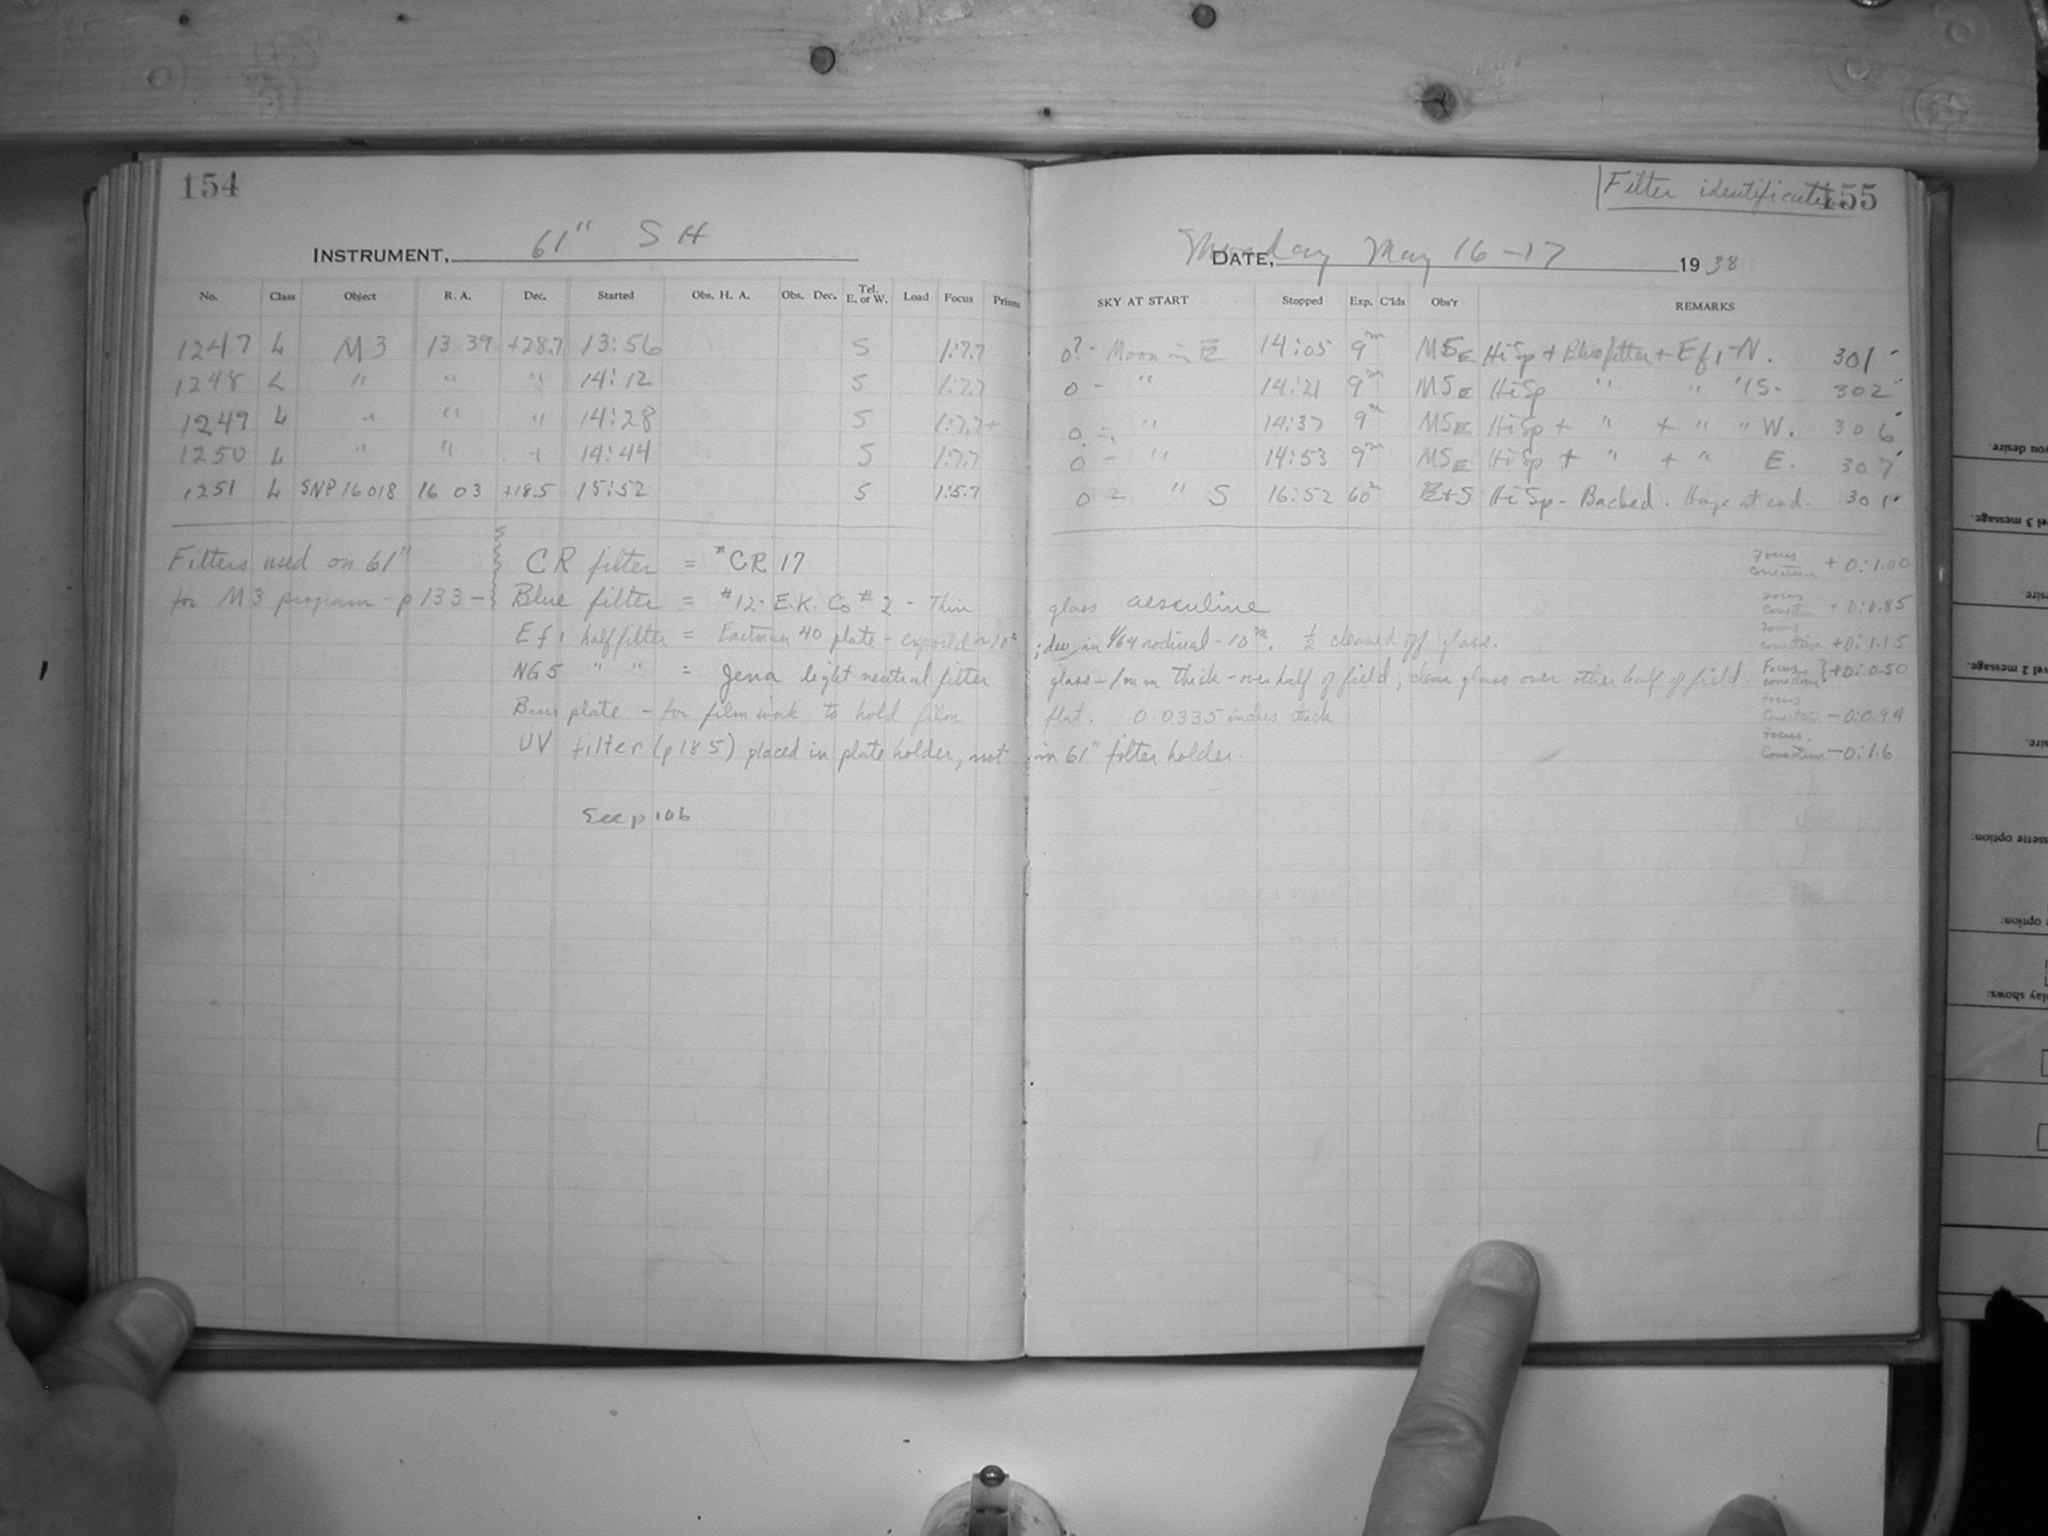 154
INSTRUMENT, 61" S H
No. Class Object R. A. Dec. Started Obs. H. A. Obs. Dec. Tel. E. or W. Load Focus Prisms
1247 L M3 13 39 +28.7 13:56 S 1:7.7
1248 L " " " 14:12 S 1:7.7
1249 L " " " 14:28 S 1:7.7+
1250 L " " " 14:44 S 1:7.7
1251 L SNP 16018 16 03 +18.5 15:52 S 1:5.7
Filters used on 61"
for M3 program - p 133 -
CR filter = #CR 17
Blue filter = #12 - E.K. Co #2 - Thin
Ef1 half filter = Eastman 40 plate - exposed
NG5 " " = Jena light neutral filter
Brass plate - for film work to hold film
UV filter (p185) placed in plate holder, not
See p 106
Filter identification
155
DATE, Monday May 16-17 1938
SKY AT START Stopped Exp. C'lds Obs'r REMARKS
0? - Moon in 14:05 9m MSE Hi Sp + Blue filter + Ef1-N. 301
0 - " 14:21 9m MSE Hi Sp " " " S- 302
0 - " 14:37 9m MSE Hi Sp + " + " " W. 306
0 - " 14:53 9m MSE Hi Sp + " + " E. 307
0 - " S 16:52 60m Hi Sp - Backed. Haze at end. 301
Focus correction + 0:1.00
glass aesculine Focus correction + 0:0.85
; dev. in 1/64 rodinal - 10m. 1/2 cleaned off glass. Focus correction +0:1.15
glass - 1mm thick - over half of field, clear glass over other half of field Focus correction +0:0.50
flat. 0.0335 inches thick Focus correction -0:0.94
in 61" filter holder. Focus correction -0:1.6
you desire.
el 3 message.
sire.
vel 2 message.
sire.
ssette option:
option:
play shows: